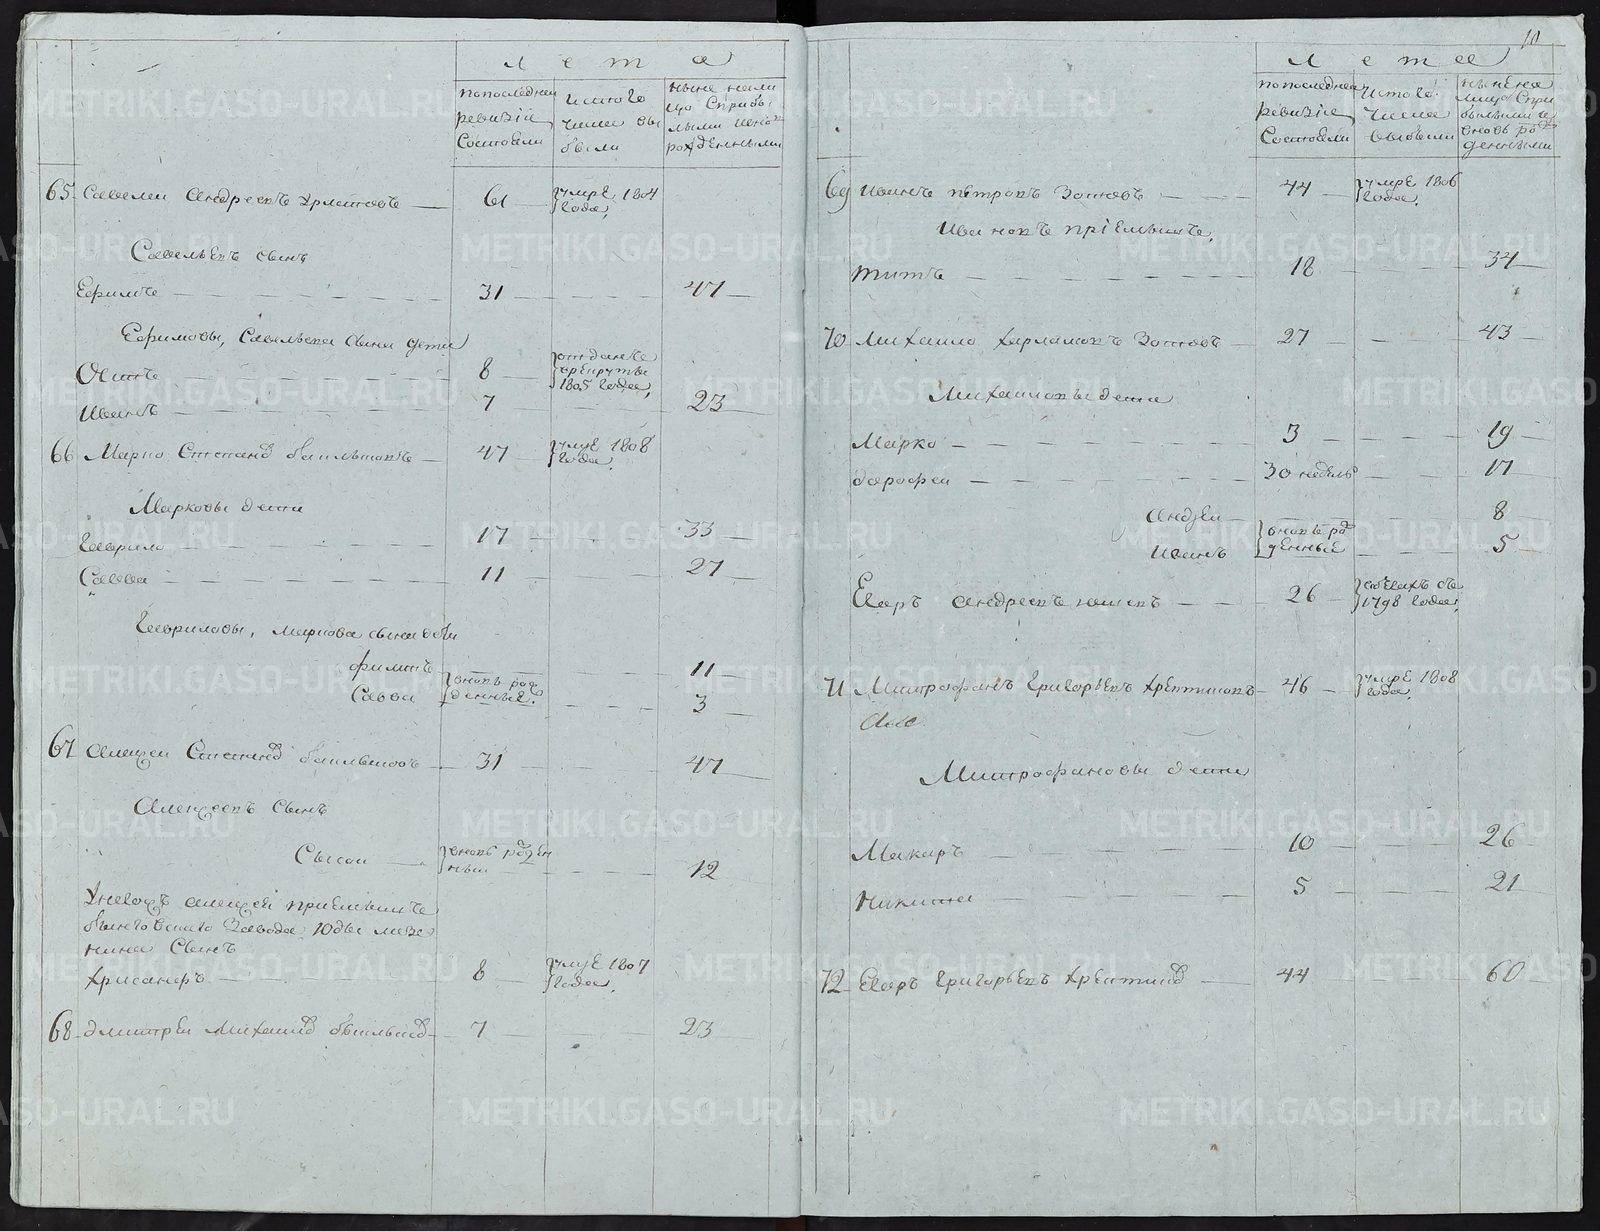 Лета
по последней ревизіи состояли
из того числа выбыли
ныне на лицо с прибылыми и вновь рожденными
65 Савелей Андреевъ 61 умре 1804 года.
Савельевъ сынъ
Ефимъ 31 47
Ефимовы, Савельева сына дети
Осипъ 8 отданъ в рекруты 1805 года,
Иванъ 7 23
66 Марко Степанов 47 умре 1808 года.
Марковы дети
Гаврило 17 33
Савва 11 27
Гавриловы, Маркова сына дети
Филипъ 11
Савва вновь рожденные. 3
67 Алексей Степанов 31 47
Алексеевъ сынъ
Сысой вновь рожденный 12
У него жъ Алексея приемышъ
Быньговского завода Юды
сынъ
Хрисанфъ 8 умре 1807 года.
68 Дмитрей Михайлов 7 23
10
Лета
по последней ревизіи состояли
из того числа выбыли
ныне на лицо с прибылыми и вновь рожденными
69 Иванъ Петровъ Зотовъ 44 умре 1806 года.
Ивановъ пріемышъ,
Титъ 18 34
70 Михайло Харламовъ Зотовъ 27 43
Михайловы дети
Марко 3 19
Дорофей 30 недель 17
Андрей 8
Иванъ вновь рожденные 5
Егоръ Андреевъ 26 в бегахъ съ 1798 года,
71 Митрофанъ Григорьевъ 46 умре 1808 года.
Митрофановы дети
Макаръ 10 26
Никита 5 21
72 Егоръ Григорьевъ 44 60
METRIKI.GASO-URAL.RU